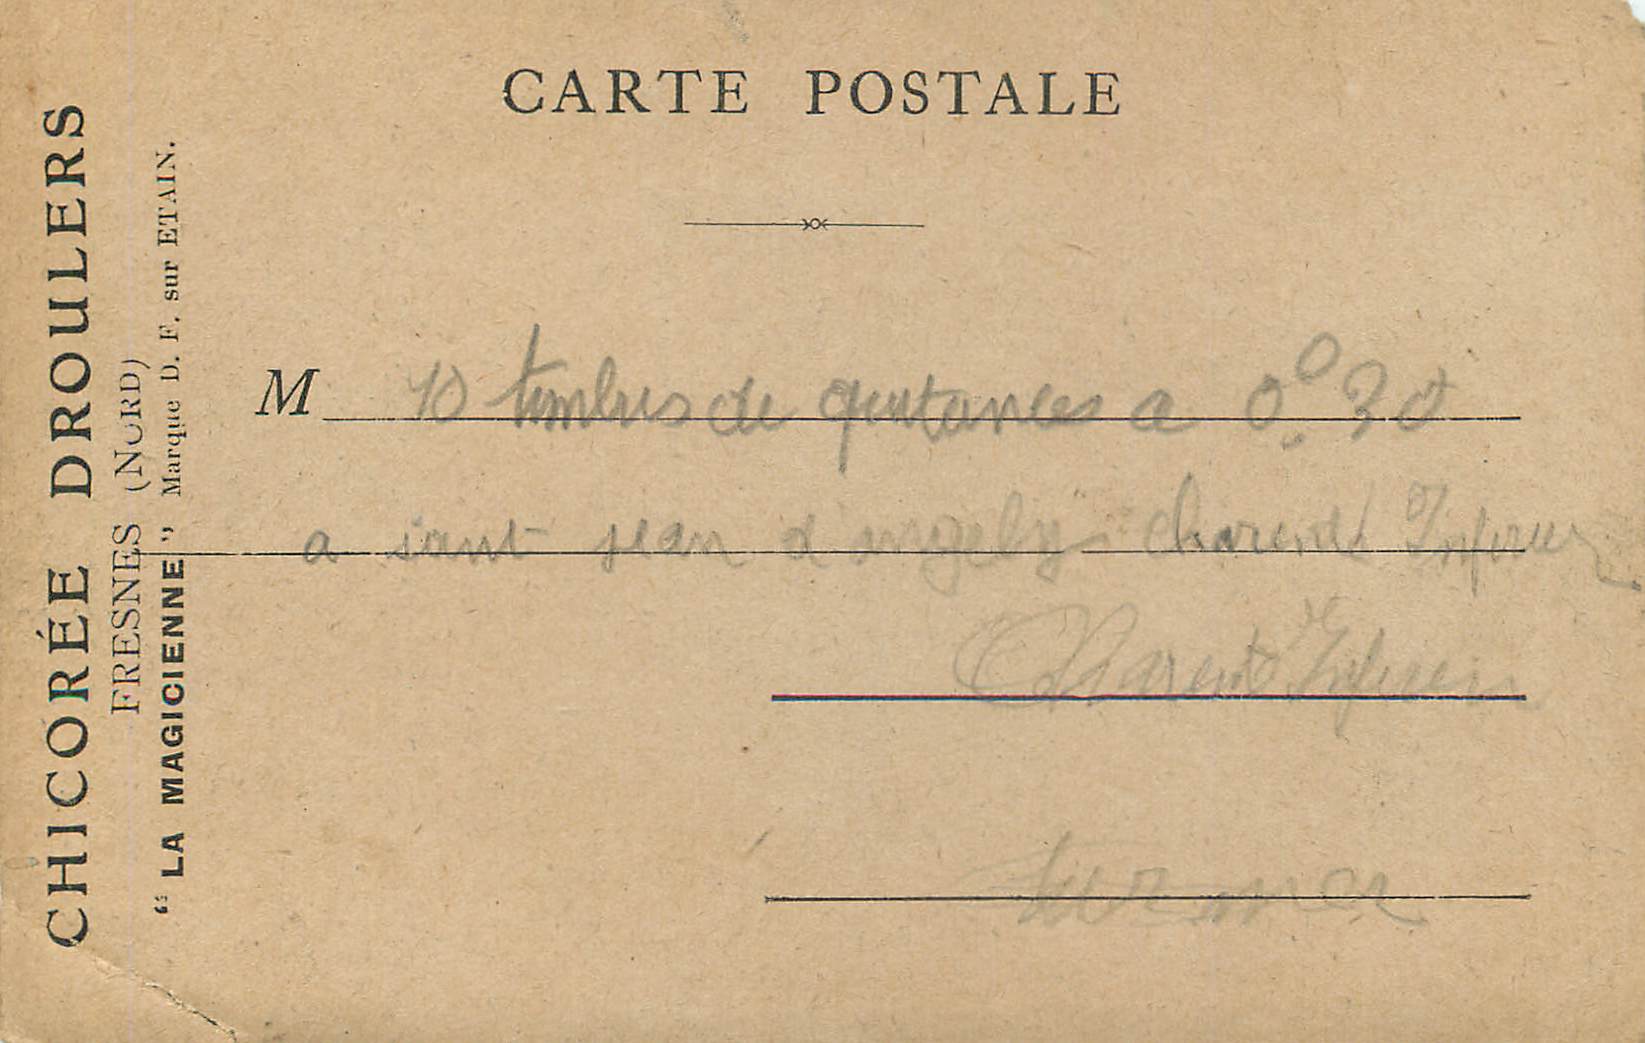 CARTE POSTALE
CHICORÉE DROULERS
FRESNES (NORD)
"LA MAGICIENNE" Marque D. F. sur ETAIN.
M 10 timbres de quitances a 0 30
a saint jean d'angely charente
Charente